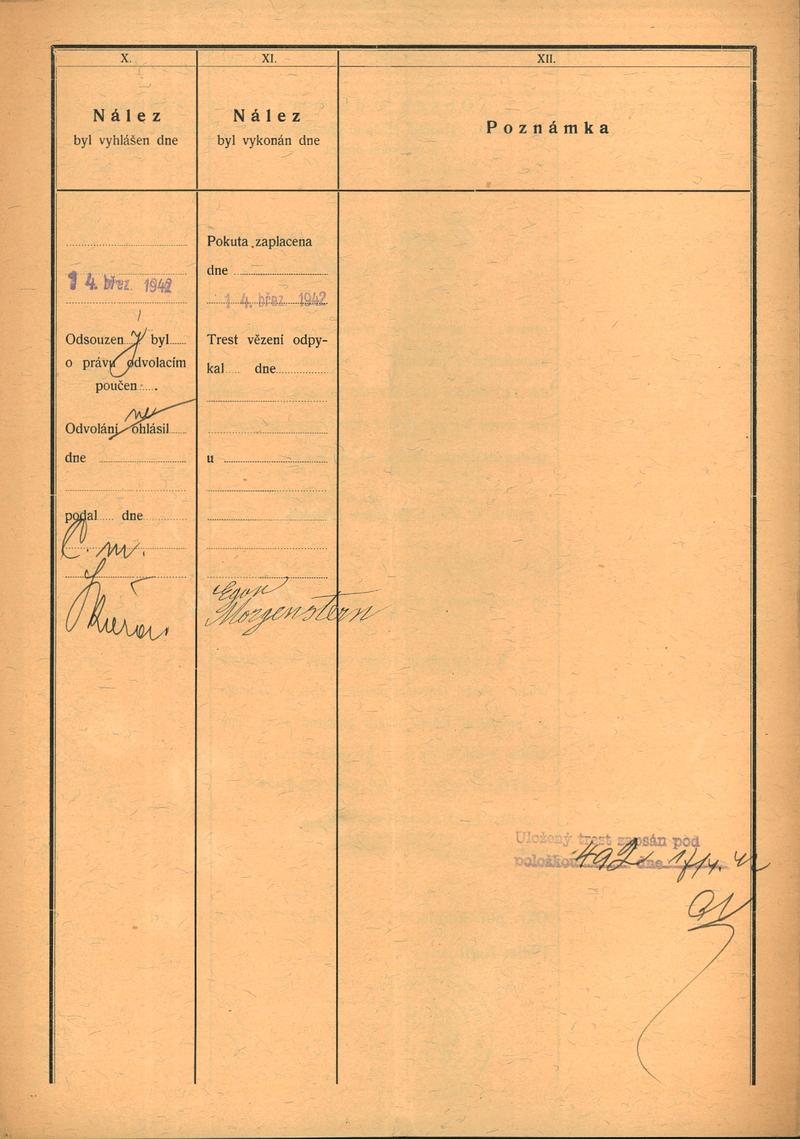 X.
Nález
byl vyhlášen dne
14. břez. 1942
Odsouzen ý byl
o právu odvolacím
poučen
ne
Odvolání ohlásil
dne
podal dne
C. m.
XI.
Nález
byl vykonán dne
Pokuta zaplacena
dne
14. břez. 1942
Trest vězení odpy-
kal dne
u
Egon
Morgenstern
XII.
Poznámka
Uložený trest zapsán pod
položkou 492 dne